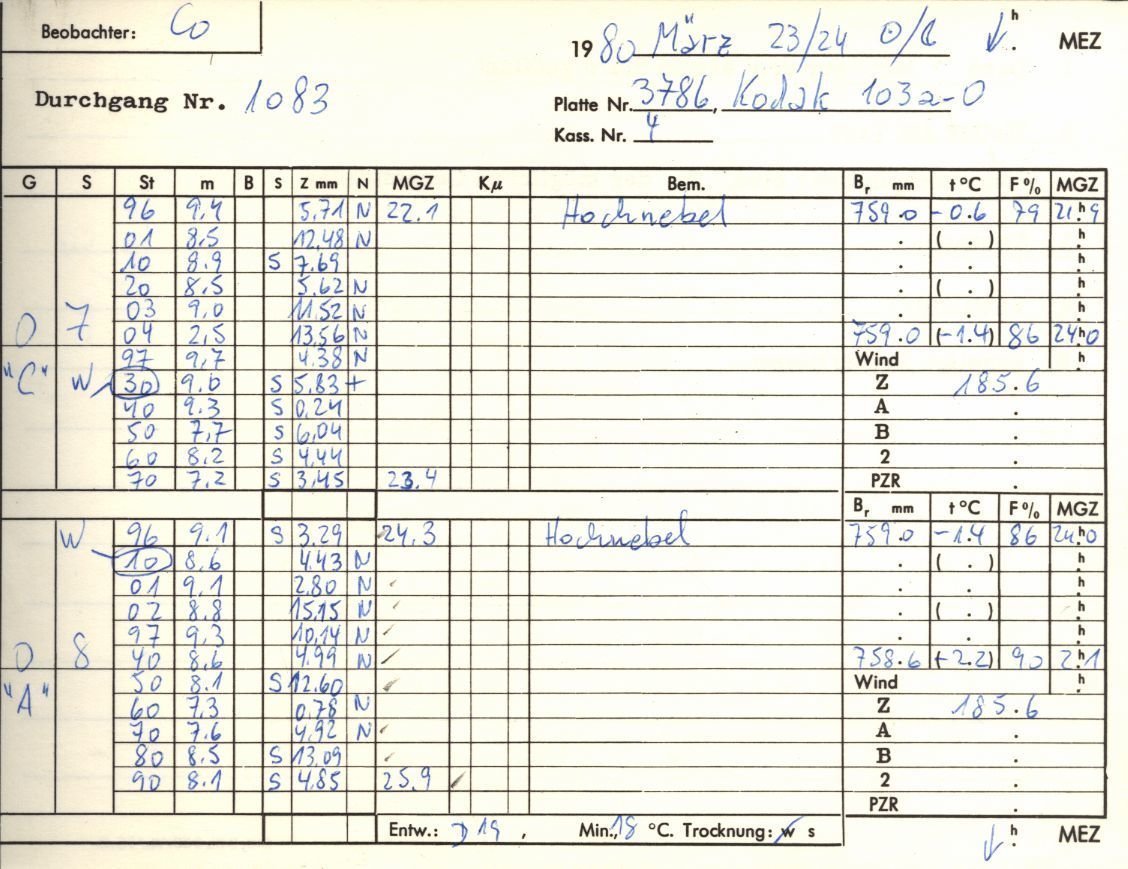 Beobachter: Co
19 80 März 23/24 ☉/☾ ↓ h. MEZ
Durchgang Nr. 1083
Platte Nr. 3786, Kodak 103a-O
Kass. Nr. 4
G S St m B S Z mm N MGZ Kµ Bem. Br mm t °C F % MGZ
96 9,4 5,71 N 22.1 Hochnebel 759.0 -0.6 79 21.h9
01 8,5 12,48 N . ( . ) h.
10 8.9 S 7.69 . . h.
20 8,5 5,62 N . ( . ) h.
03 9,0 11.52 N . . h.
0 7 04 2,5 13,56 N 759.0 (-1.4) 86 24.h0
97 9,7 4.38 N Wind h.
"C" W 30 9.6 S 5.83 + Z 185.6
40 9.3 S 0,24 A .
50 7,7 S 6,04 B .
60 8,2 S 4,44 2 .
70 7,2 S 3,45 23.4 PZR .
Br mm t °C F % MGZ
W 96 9.1 S 3.29 24,3 Hochnebel 759.0 -1.4 86 24.h0
10 8,6 4,43 N . ( . ) h.
01 9,1 2,80 N . . h.
02 8.8 15,15 N . ( . ) h.
97 9,3 10,14 N . . h.
0 8 40 8,6 4,99 N 758.6 (-2.2) 90 2.h1
50 8.1 S 12.60 Wind h.
"A" 60 7,3 0,78 N Z 185.6
70 7.6 4,92 N A .
80 8.5 S 13,09 B .
90 8.1 S 4.85 25,9 2 .
PZR .
Entw.: D19, Min., 18 °C. Trocknung: w s
↓ h. MEZ